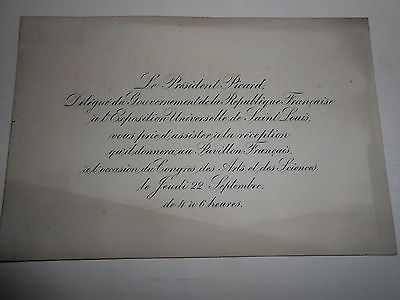 Le Président Picard,
Délégué du Gouvernement de la République Française
à l'Exposition Universelle de Saint Louis,
vous prie d'assister à la réception
qu'il donnera au Pavillon Français,
à l'occasion du Congrès des Arts et des Sciences,
le Jeudi 22 Septembre,
de 4 à 6 heures.